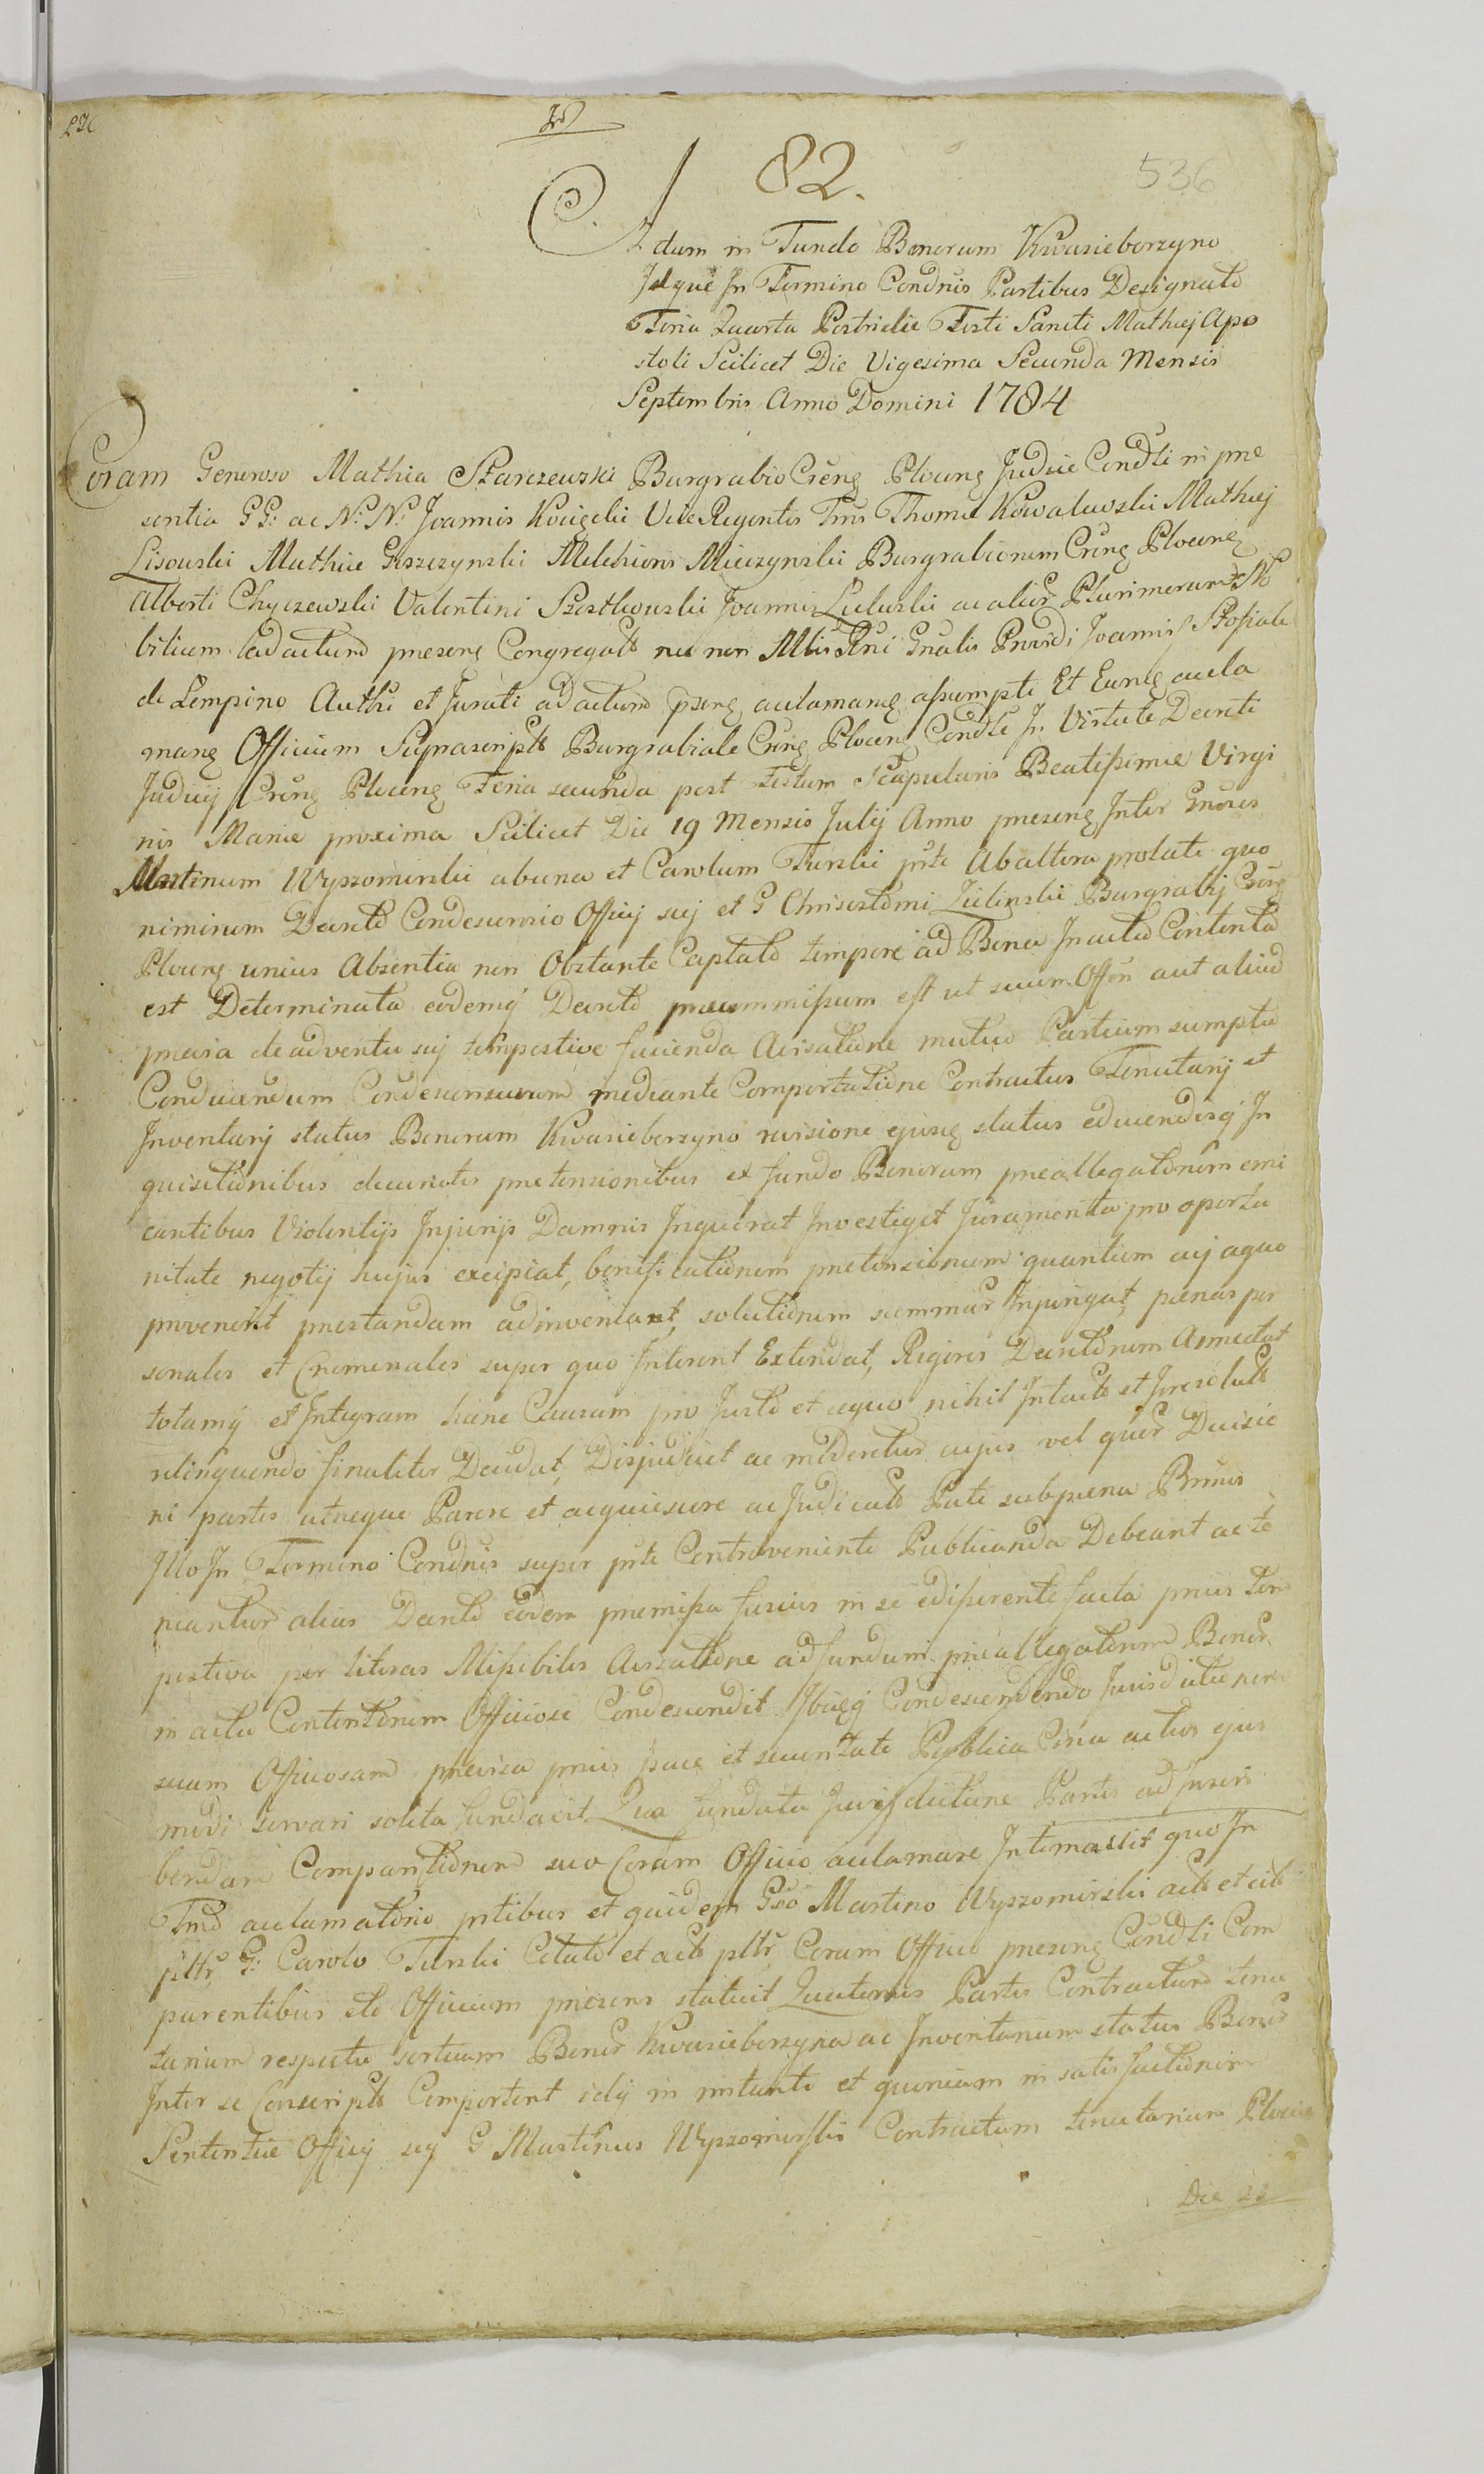 82.
536
Actum in Fundo Bonorum Kwasieborzyno
Idque In Termino Condnis Partibus Designato
Feria Quarta Postridie Festi Sancti Mathæj Apo
stoli Scilicet Die Vigesima Secunda Mensis
Septembris Anno Domini 1784
Coram Generoso Mathia Starczewski Burgrabio Creng Ploceng Judice Condli in præ
sentia GG: ac N: N: Joannis Vice Regentis Thomæ Kowalewski Mathæj
Lisowski Mathiæ Melchioris Mieczynski Burgrabiorum Creng Ploceng
Alberti Chyczewski Valentini Szostkowski Joannis Lulwski ac alior Plurimorum No
bilium ad actum præseng Congregat nec non Mtis Gnalis Joannis
de Lempino Authi et Jurati ad actum pseng aclamang assumpti Et Euneg acla
mang Officium Suprascript Burgrabiale Creng Ploceng Condle In Virtute Decreti
Judicij Creng Ploceng Feria secunda post Festum Scapularis Beatissimæ Virgi
nis Mariæ proxima Scilicet Die 19 Mensis Julij Anno præseng Inter Gnosos
Martinum Wyszomirski ab una et Carolum Turski pte Ab altera prolati quo
nimirum Decreto Condescensio Officij sui et G Chrisostomi Zielinski Burgrabij Creng
Ploceng unius Absentia non Obstante Captato tempore ad Bona In actu Contenta
est Determinata eodemq Decreto præcommissum est ut suum Offm aut aliud
prævia de adventu sui tempestive facienda Avisatione mutuo Partium sumptu
Conducendum Condescensurum mediante Comportatione Contractus Tenutarij et
Inventarij status Bonorum Kwasieborzyno revisione ejusq status educendisq In
quisitionibus de cunctis prætensionibus ex fundo Bonorum præallegatorum emi
cantibus Violentijs Injurijs Damnis Inquirat Investiget Juramenta pro oportu
nitate negotij hujus excipiat, bonificationem prætensionum quantum cuj a quo
provenerit præstandam adinveniat, solutionem summar Injungat, pænas per
sonales et Criminales super quo Interent Extendat, Rigores Decretorum Annectat
totamq et Integram hanc Causam pro Justo et æquo nihil Intacte et Iresolute
relinquendo finaliter Decidat, Disjudicet ac cujus vel quor Decisio
ni partes utræque Parere et acquiescere ac Judicato Pati sub pæna Bnnis
Illo In Termino Condnis super pte Contraveniente Publicanda Debeant ac te
neantur alias Decreto eodem præmissa fusius in se edisserente facta prius tem
pestiva per literas Missibiles Avisatione ad fundum præallegatorum Bonor
in actu Contentorum Officiose Condescendit Ibiq Condescendendo Jurisdictionem
suam Officiosam prævia prius pace et securitate Publica Circa actus ejus
modi servari solita fundavit Qua fundata Jurisdictione Partes ad Inscri
bendam Comparitionem suo Coram Officio aclamare Intimavit quo In
Tmo aclamatorio ptibus et quidem Gso Martino Wyszomirski acte et cite
pltr G: Carolo Turski Citato et acte pltr Coram Officio præseng Condli Com
parentibus Officium præsens statuit Quatenus Partes Contractum tenu
tarium respectu sortium Bonor Kwasieborzyna ac Inventarium status Bonor
Inter se Conscript Comportent in instanti et quoniam in satisfactionem
Sententiæ Officij suj G Martinus Wyszomirski Contractum tenutarium Plociæ
Die 22